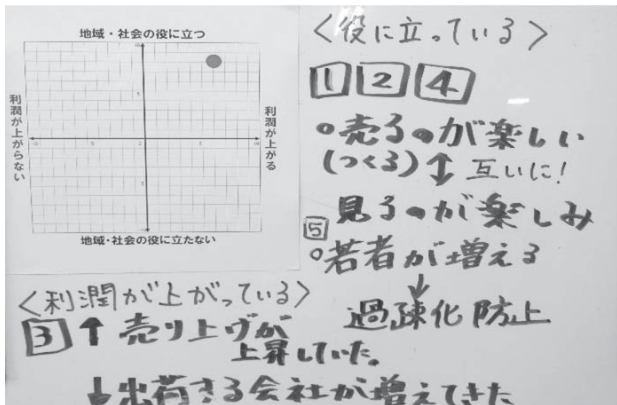 地域・社会の役に立つ
利潤が上がらない
利潤が上がる
地域・社会の役に立たない
<役に立っている>
1 2 4
○売るのが楽しい
(つくる)↕互いに!
見るのが楽しみ
5
○若者が増える
↓
過疎化防止
<利潤が上がっている>
3 ↑売り上げが
上昇していた。
↓出荷する会社が増えてきた